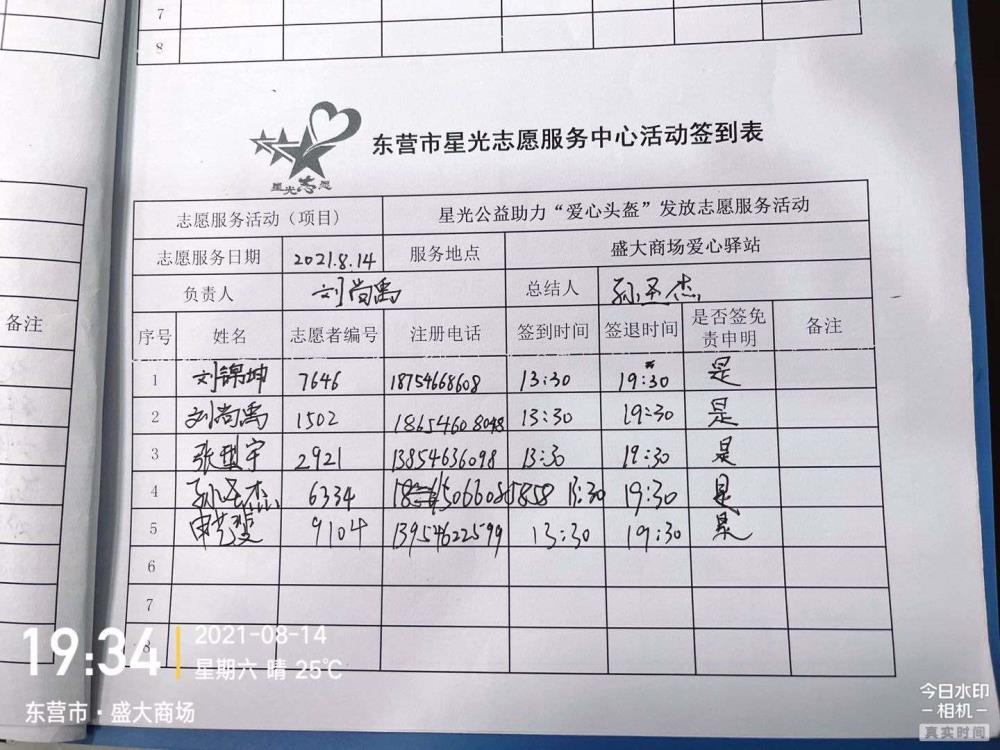 7
8
星光志愿
东营市星光志愿服务中心活动签到表
志愿服务活动（项目） 星光公益助力“爱心头盔”发放志愿服务活动
志愿服务日期 2021.8.14 服务地点 盛大商场爱心驿站
负责人 刘尚禹 总结人 孙圣杰
备注
序号 姓名 志愿者编号 注册电话 签到时间 签退时间 是否签免责申明 备注
1 刘锦坤 7646 18754668608 13:30 19:30 是
2 刘尚禹 1502 18654608048 13:30 19:30 是
3 张 宇 2921 13854636098 13:30 19:30 是
4 孙圣杰 6334 13:30 19:30 是
5 申艺斐 9104 13954622599 13:30 19:30 是
6
7
8
19:34 2021-08-14
星期六 晴 25℃
东营市·盛大商场
今日水印
相机
真实时间